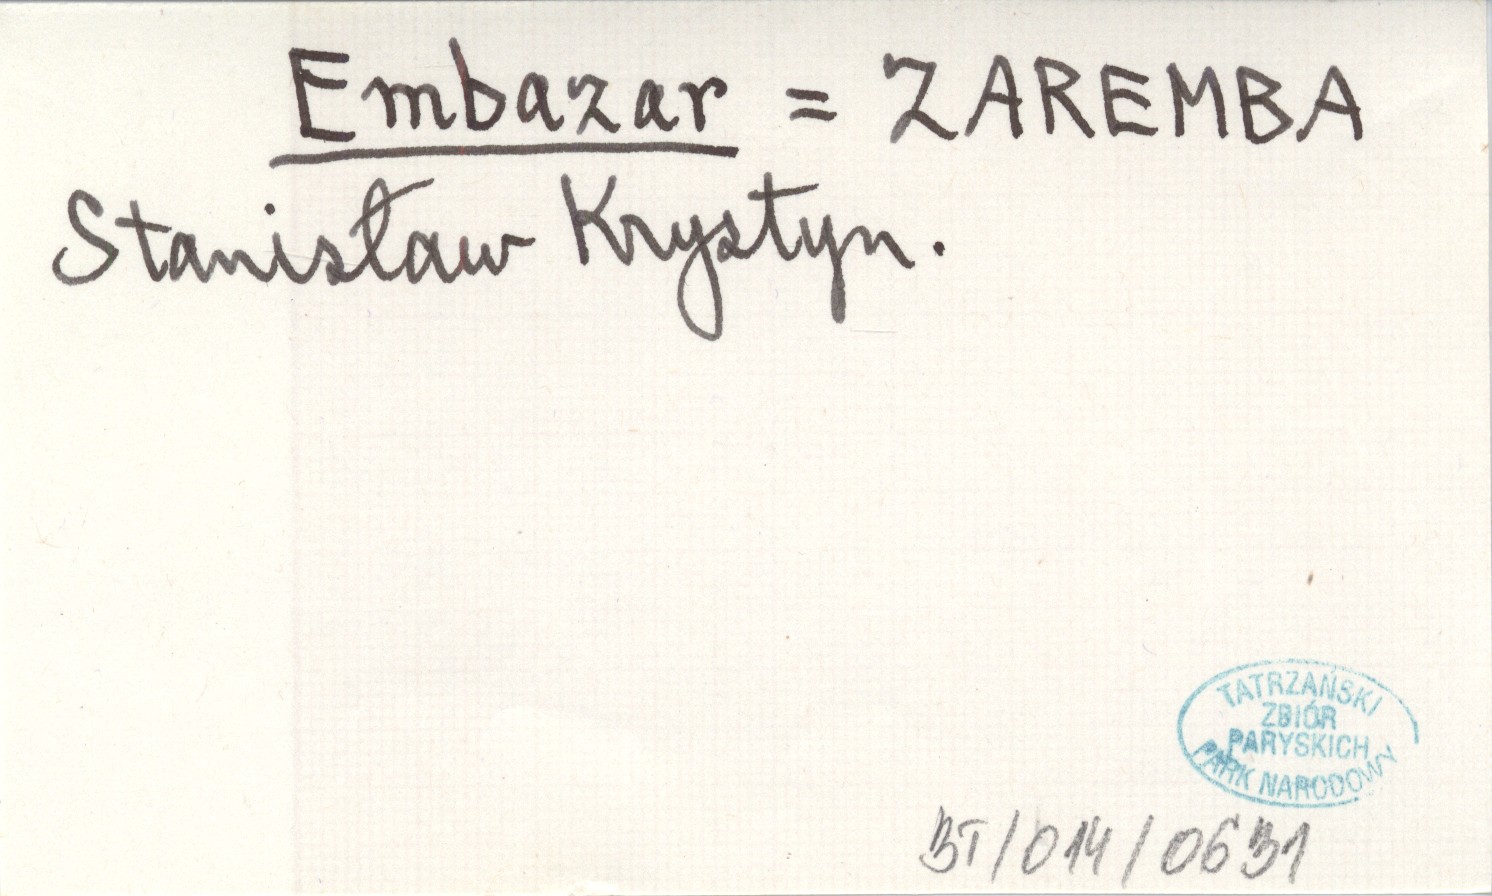 Embazar = ZAREMBA
Stanisław Krystyn.
TATRZAŃSKI
ZBIÓR
PARYSKICH
PARK NARODOWY
BT/014/0631